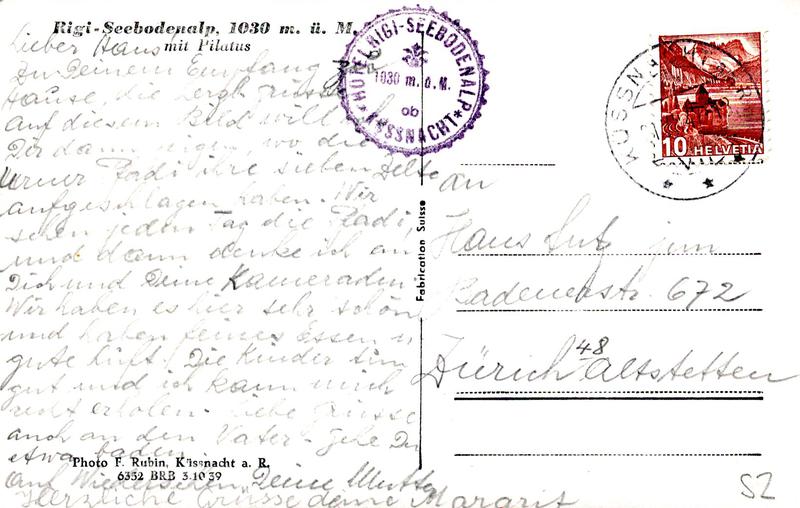 Rigi-Seebodenalp, 1030 m. ü. M.
mit Pilatus
HOTEL RIGI-SEEBODENALP
1030 m. ü. M.
ob
KÜSSNACHT
KÜSSNACHT
10 HELVETIA
Lieber Hans
Zu Deinem Empfang
Hause, die
auf diesem Bild will
Dir dann zeigen, wo die
Urner Pfadi ihre sieben Zelte
aufgeschlagen haben. Wir
sehen jeden Tag die Pfadi
und dann denke ich an
Dich und Deine Kameraden.
Wir haben es hier sehr schön
und haben feines Essen u
gute Luft! Die Kinder sin
gut und ich kann mich
recht erholen. Liebe Grüsse
auch an den Vater. Gehe Du
etwa baden
Auf Wiedersehen Deine Mutter
Herzliche Grüsse deine Margrit
Photo F. Rubin, Küssnacht a. R.
6352 BRB 3.10 39
Fabrication Suisse
an
Hans Lutz jun
Badenerstr. 672
Zürich 48 Altstetten
52